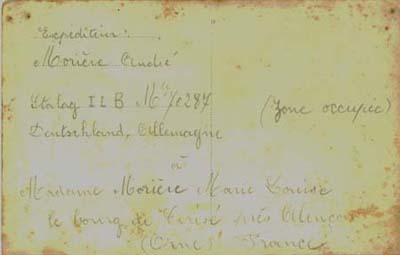 Expéditeur :
Morière André
Stalag II B Mle 70287
(Zone occupée)
Deutschland, Allemagne
à
Madame Morière Marie Louise
le bourg de Cerisé près Alençon
(Orne) France